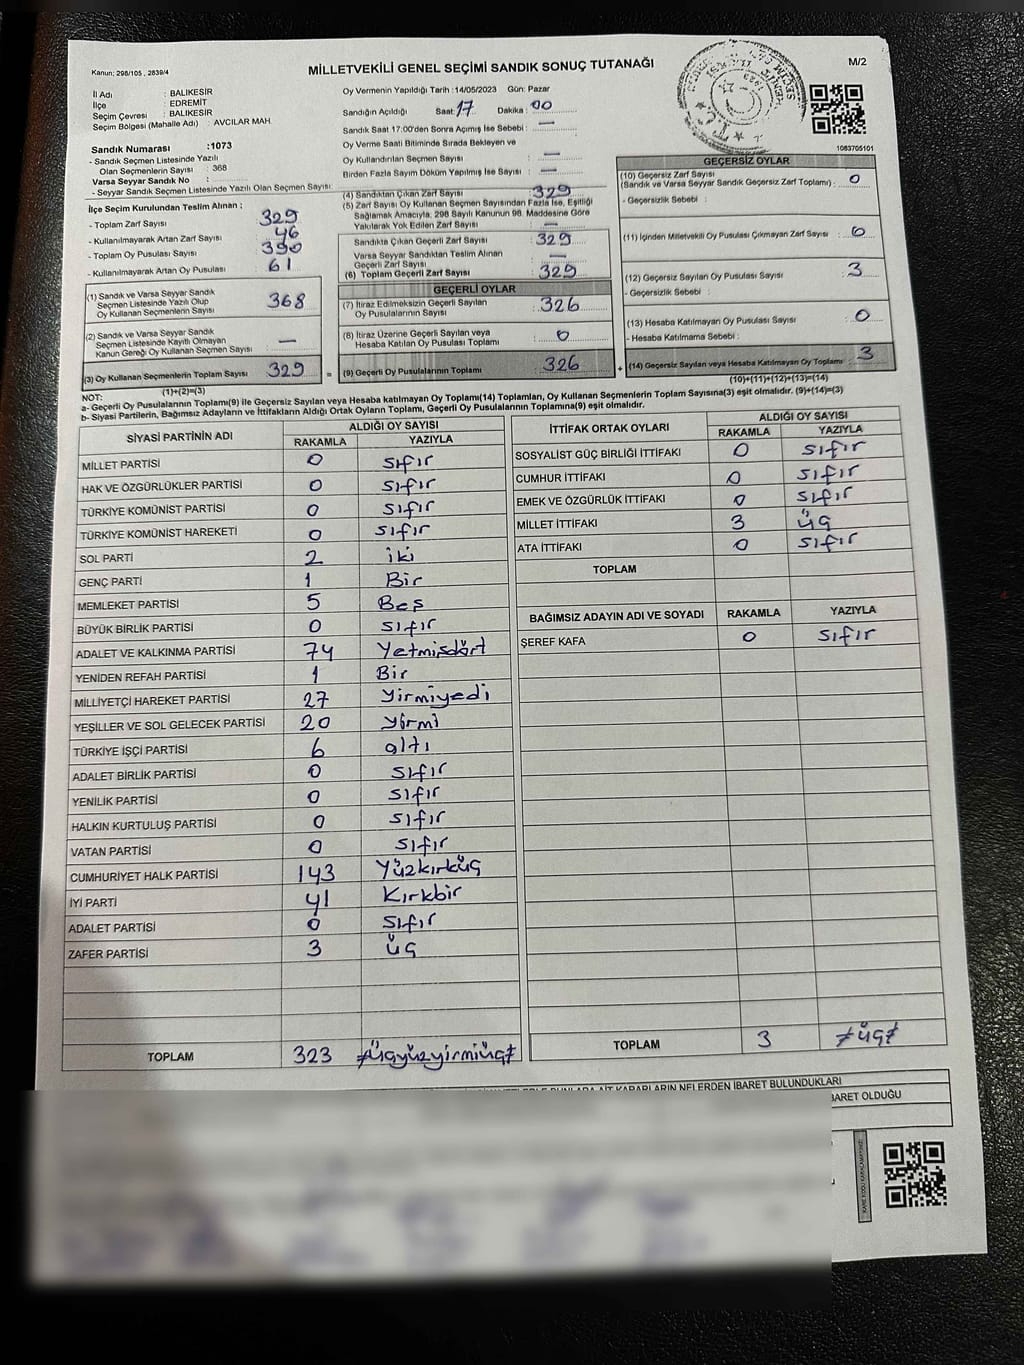 Kanun: 298/105 , 2839/4
MİLLETVEKİLİ GENEL SEÇİMİ SANDIK SONUÇ TUTANAĞI
M/2
İl Adı : BALIKESİR
İlçe : EDREMİT
Seçim Çevresi : BALIKESİR
Seçim Bölgesi (Mahalle Adı) : AVCILAR MAH.
Sandık Numarası :1073
- Sandık Seçmen Listesinde Yazılı
Olan Seçmenlerin Sayısı : 368
Varsa Seyyar Sandık No :
- Seyyar Sandık Seçmen Listesinde Yazılı Olan Seçmen Sayısı:
Oy Vermenin Yapıldığı Tarih :14/05/2023 Gün: Pazar
Sandığın Açıldığı Saat: 17 Dakika : 00
Sandık Saat 17:00'den Sonra Açımış İse Sebebi : —
Oy Verme Saati Bitiminde Sırada Bekleyen ve
Oy Kullandırılan Seçmen Sayısı : —
Birden Fazla Sayım Döküm Yapılmış İse Sayısı : —
T.C.
1083705101
İlçe Seçim Kurulundan Teslim Alınan ;
- Toplam Zarf Sayısı : 329
- Kullanılmayarak Artan Zarf Sayısı : 46
- Toplam Oy Pusulası Sayısı : 390
- Kullanılmayarak Artan Oy Pusulası : 61
(1) Sandık ve Varsa Seyyar Sandık
Seçmen Listesinde Yazılı Olup
Oy Kullanan Seçmenlerin Sayısı : 368
(2) Sandık ve Varsa Seyyar Sandık
Seçmen Listesinde Kayıtlı Olmayan
Kanun Gereği Oy Kullanan Seçmen Sayısı : —
(3) Oy Kullanan Seçmenlerin Toplam Sayısı : 329
(1)+(2)=(3)
(4) Sandıktan Çıkan Zarf Sayısı : 329
(5) Zarf Sayısı Oy Kullanan Seçmen Sayısından Fazla İse, Eşitliği
Sağlamak Amacıyla, 298 Sayılı Kanunun 98. Maddesine Göre
Yakılarak Yok Edilen Zarf Sayısı :
Sandıkta Çıkan Geçerli Zarf Sayısı : 329
Varsa Seyyar Sandıktan Teslim Alınan
Geçerli Zarf Sayısı : —
(6) Toplam Geçerli Zarf Sayısı : 329
GEÇERLİ OYLAR
(7) İtiraz Edilmeksizin Geçerli Sayılan
Oy Pusulalarının Sayısı : 326
(8) İtiraz Üzerine Geçerli Sayılan veya
Hesaba Katılan Oy Pusulası Toplamı : 0
= (9) Geçerli Oy Pusulalarının Toplamı : 326 +
GEÇERSİZ OYLAR
(10) Geçersiz Zarf Sayısı
(Sandık ve Varsa Seyyar Sandık Geçersiz Zarf Toplamı) : 0
- Geçersizlik Sebebi :
(11) İçinden Milletvekili Oy Pusulası Çıkmayan Zarf Sayısı : 0
(12) Geçersiz Sayılan Oy Pusulası Sayısı : 3
- Geçersizlik Sebebi :
(13) Hesaba Katılmayan Oy Pusulası Sayısı : 0
- Hesaba Katılmama Sebebi :
(14) Geçersiz Sayılan veya Hesaba Katılmayan Oy Toplamı : 3
(10)+(11)+(12)+(13)=(14)
NOT:
a- Geçerli Oy Pusulalarının Toplamı(9) ile Geçersiz Sayılan veya Hesaba katılmayan Oy Toplamı(14) Toplamları, Oy Kullanan Seçmenlerin Toplam Sayısına(3) eşit olmalıdır. (9)+(14)=(3)
b- Siyasi Partilerin, Bağımsız Adayların ve İttifakların Aldığı Ortak Oyların Toplamı, Geçerli Oy Pusulalarının Toplamına(9) eşit olmalıdır.
SİYASİ PARTİNİN ADI ALDIĞI OY SAYISI
RAKAMLA YAZIYLA
MİLLET PARTİSİ 0 sıfır
HAK VE ÖZGÜRLÜKLER PARTİSİ 0 sıfır
TÜRKİYE KOMÜNİST PARTİSİ 0 sıfır
TÜRKİYE KOMÜNİST HAREKETİ 0 sıfır
SOL PARTİ 2 iki
GENÇ PARTİ 1 Bir
MEMLEKET PARTİSİ 5 Beş
BÜYÜK BİRLİK PARTİSİ 0 sıfır
ADALET VE KALKINMA PARTİSİ 74 Yetmişdört
YENİDEN REFAH PARTİSİ 1 Bir
MİLLİYETÇİ HAREKET PARTİSİ 27 Yirmiyedi
YEŞİLLER VE SOL GELECEK PARTİSİ 20 yirmi
TÜRKİYE İŞÇİ PARTİSİ 6 altı
ADALET BİRLİK PARTİSİ 0 sıfır
YENİLİK PARTİSİ 0 sıfır
HALKIN KURTULUŞ PARTİSİ 0 sıfır
VATAN PARTİSİ 0 sıfır
CUMHURİYET HALK PARTİSİ 143 Yüzkırküç
İYİ PARTİ 41 Kırkbir
ADALET PARTİSİ 0 sıfır
ZAFER PARTİSİ 3 üç
TOPLAM 323 ≠üçyüzyirmiüç≠
İTTİFAK ORTAK OYLARI ALDIĞI OY SAYISI
RAKAMLA YAZIYLA
SOSYALİST GÜÇ BİRLİĞİ İTTİFAKI 0 sıfır
CUMHUR İTTİFAKI 0 sıfır
EMEK VE ÖZGÜRLÜK İTTİFAKI 0 sıfır
MİLLET İTTİFAKI 3 üç
ATA İTTİFAKI 0 sıfır
TOPLAM
BAĞIMSIZ ADAYIN ADI VE SOYADI RAKAMLA YAZIYLA
ŞEREF KAFA 0 sıfır
TOPLAM 3 ≠üç≠
BUNLARA AİT KARARLARIN NELERDEN İBARET BULUNDUKLARI
İBARET OLDUĞU